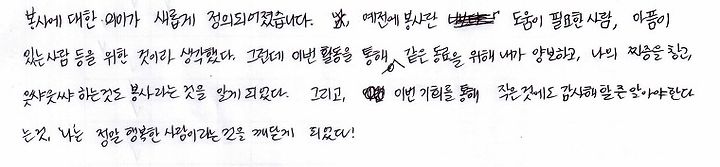 봉사에 대한 의미가 새롭게 정의되어졌습니다. 예전에 봉사란 도움이 필요한 사람, 아픔이
있는 사람 등을 위한 것이라 생각했다. 그런데 이번 활동을 통해 같은 동료를 위해 내가 양보하고, 나의 짜증을 참고,
웃샤웃쌰 하는것도 봉사라는 것을 알게 되었다. 그리고, 이번 기회를 통해 작은것에도 감사해 할 줄 알아야한다
는것, 나는 정말 행복한 사람이라는것을 깨닫게 되었다!